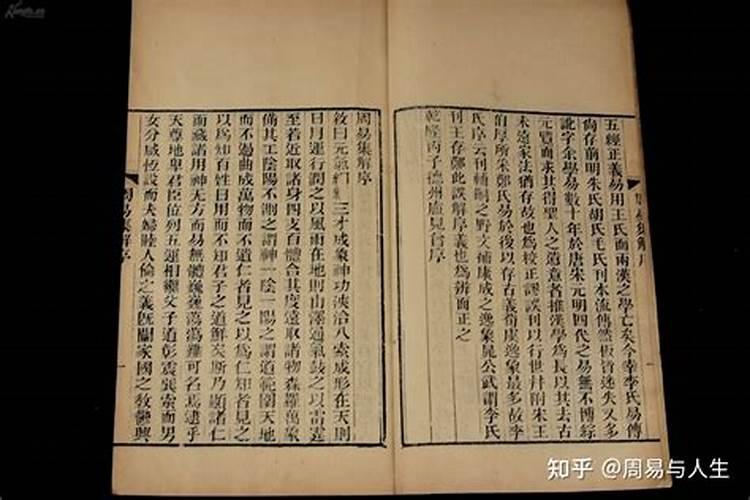 五經正義易用王氏而兩漢之學亡矣今幸李氏易傳
尚存前明朱氏胡氏毛氏刊本流傳然板皆迷失又多
訛字余學易數十年於唐宋元明四代之易無不博綜
元覽而求其得聖人之遺意者推漢學為長以其去古
未遠家法猶存故也為校正謬誤刊以行世并附朱王
伯厚所采鄭氏易於後以存古義荀虞逸象最多故李
氏序云刊輔嗣之野文補康成之逸象晁公武謂李氏
刊王存鄭此誤解序義也為辨而正之
乾隆丙子德州盧見曾序
周易集解序
周易集解序
敘曰元氣絪縕三才成象神功浹洽八索成形在天則
日月運行潤之以風雨在地則山澤通氣鼓之以雷霆
至若近取諸身四支百體合其度遠取諸物森羅萬象
備其工陰陽不測之謂神一陰一陽之謂道範圍天地
而不過曲成萬物而不遺仁者見之以為仁知者見之
以為知百姓日用而不知君子之道鮮矣斯乃顯諸仁
而藏諸用神无方而易無體巍巍蕩蕩難可名焉逮乎
天尊地卑君臣位列五運相繼父子道彰震巽索而男
女分咸恆設而夫婦睦人倫之義既闡家國之教鬱興
周易集解序
知乎 @周易与人生